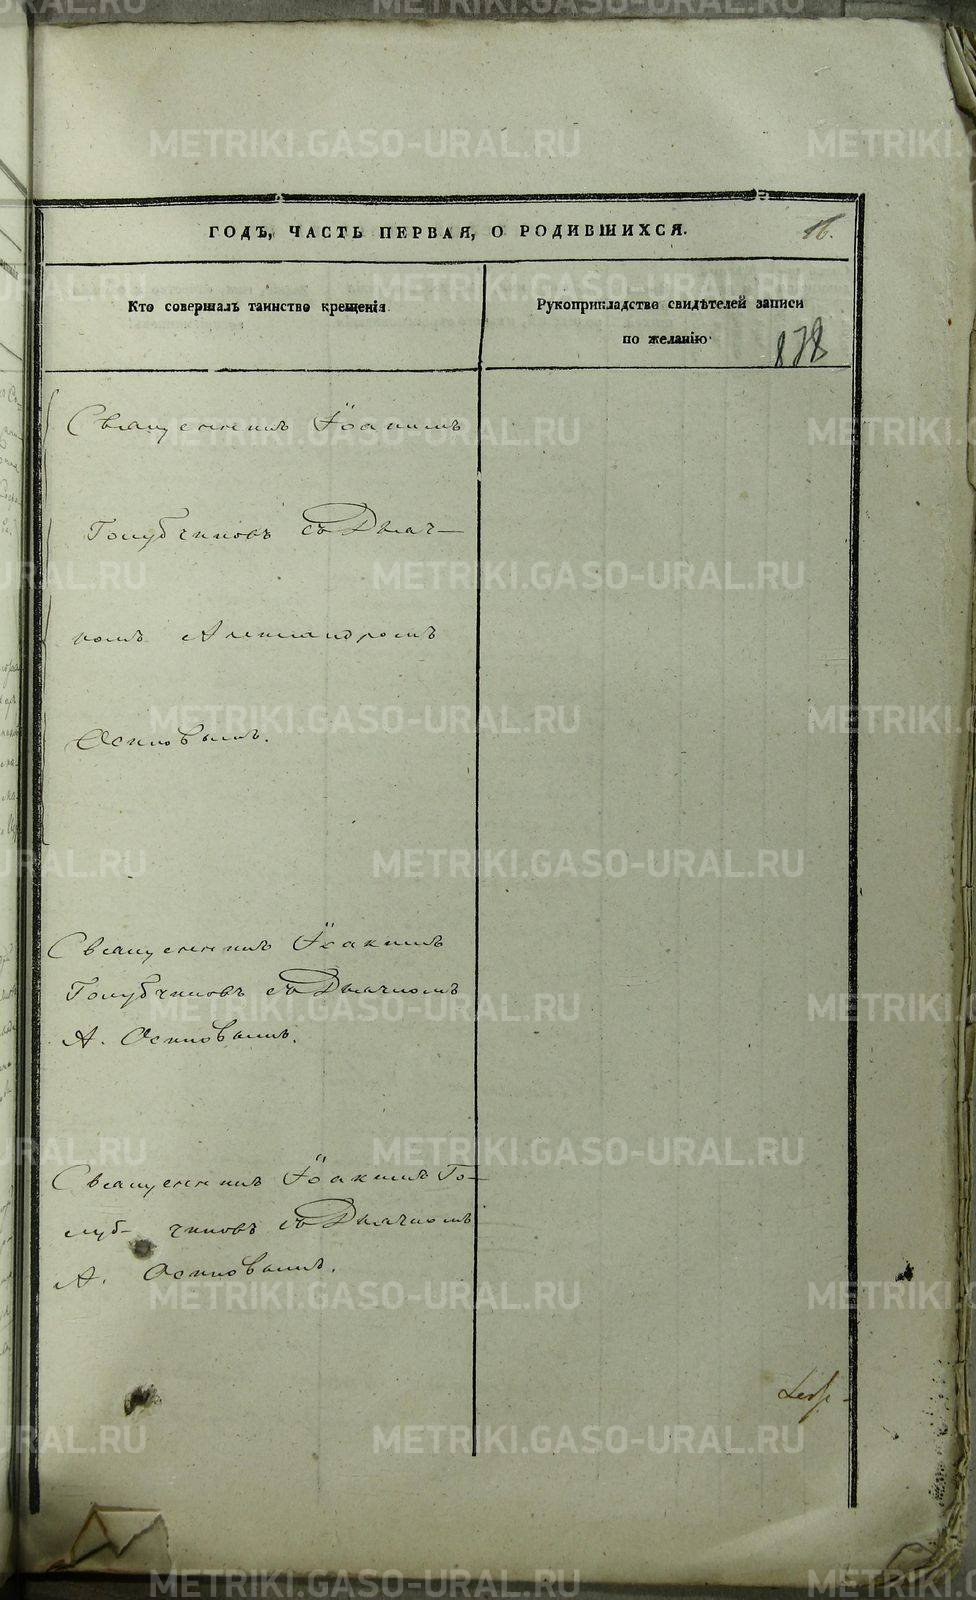 ГОДЪ, ЧАСТЬ ПЕРВАЯ, О РОДИВШИХСЯ.
16.
Кто совершалъ таинство крещенія
Рукоприкладство свидѣтелей записи
по желанію
878
Священникъ Іоакимъ
Голубчиковъ съ Дьяч-
комъ Александромъ
Осиповымъ.
Священникъ Іоакимъ
Голубчиковъ съ Дьячкомъ
А. Осиповымъ.
Священникъ Іоакимъ Го-
луб- чиковъ съ Дьячкомъ
А. Осиповымъ.
METRIKI.GASO-URAL.RU